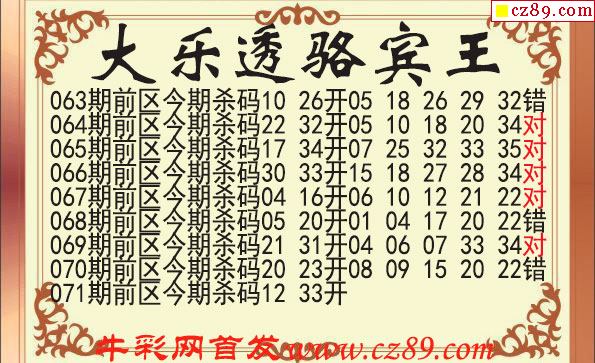 cz89.com
大乐透骆宾王
063期前区今期杀码10 26开05 18 26 29 32错
064期前区今期杀码22 32开05 10 18 20 34对
065期前区今期杀码17 34开07 25 32 33 35对
066期前区今期杀码30 33开15 18 27 28 34对
067期前区今期杀码04 16开06 10 12 21 22对
068期前区今期杀码05 20开01 04 17 20 22错
069期前区今期杀码21 31开04 06 07 33 34对
070期前区今期杀码20 23开08 09 15 20 22错
071期前区今期杀码12 33开
牛彩网首发www.cz89.com